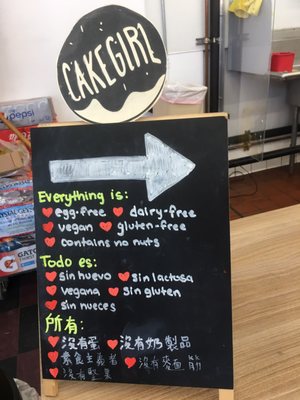 CAKEGIRL
pepsi
Everything is:
egg-free dairy-free
vegan gluten-free
contains no nuts
Todo es:
sin huevo sin lactosa
vegana sin gluten
sin nueces
所有:
沒有蛋 沒有奶製品
素食主義者 沒有麥面筋
沒有堅果